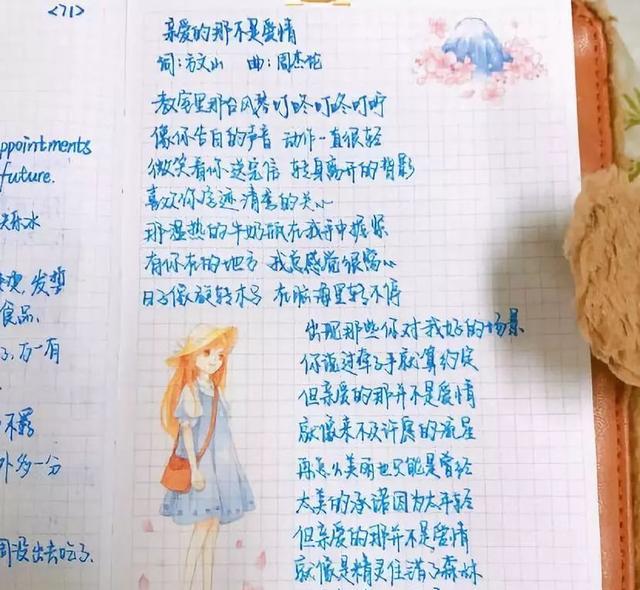 <71>
ppointments
future.
食品、
了,万一有
外多一分
周没出去吃了.
亲爱的那不是爱情
词:方文山 曲:周杰伦
教室里那台风琴叮咚叮咚叮咛
像你告白的声音 动作一直很轻
微笑看你送完信 转身离开的背影
喜欢你字迹清秀的关心
那温热的牛奶瓶在我手中握紧
有你在的地方 我总感觉很窝心
日子像旋转木马 在脑海里转不停
出现那些你对我好的场景
你说过牵了手就算约定
但亲爱的那并不是爱情
就像来不及许愿的流星
再怎么美丽也只能是曾经
太美的承诺因为太年轻
但亲爱的那并不是爱情
就像是精灵住错了森林